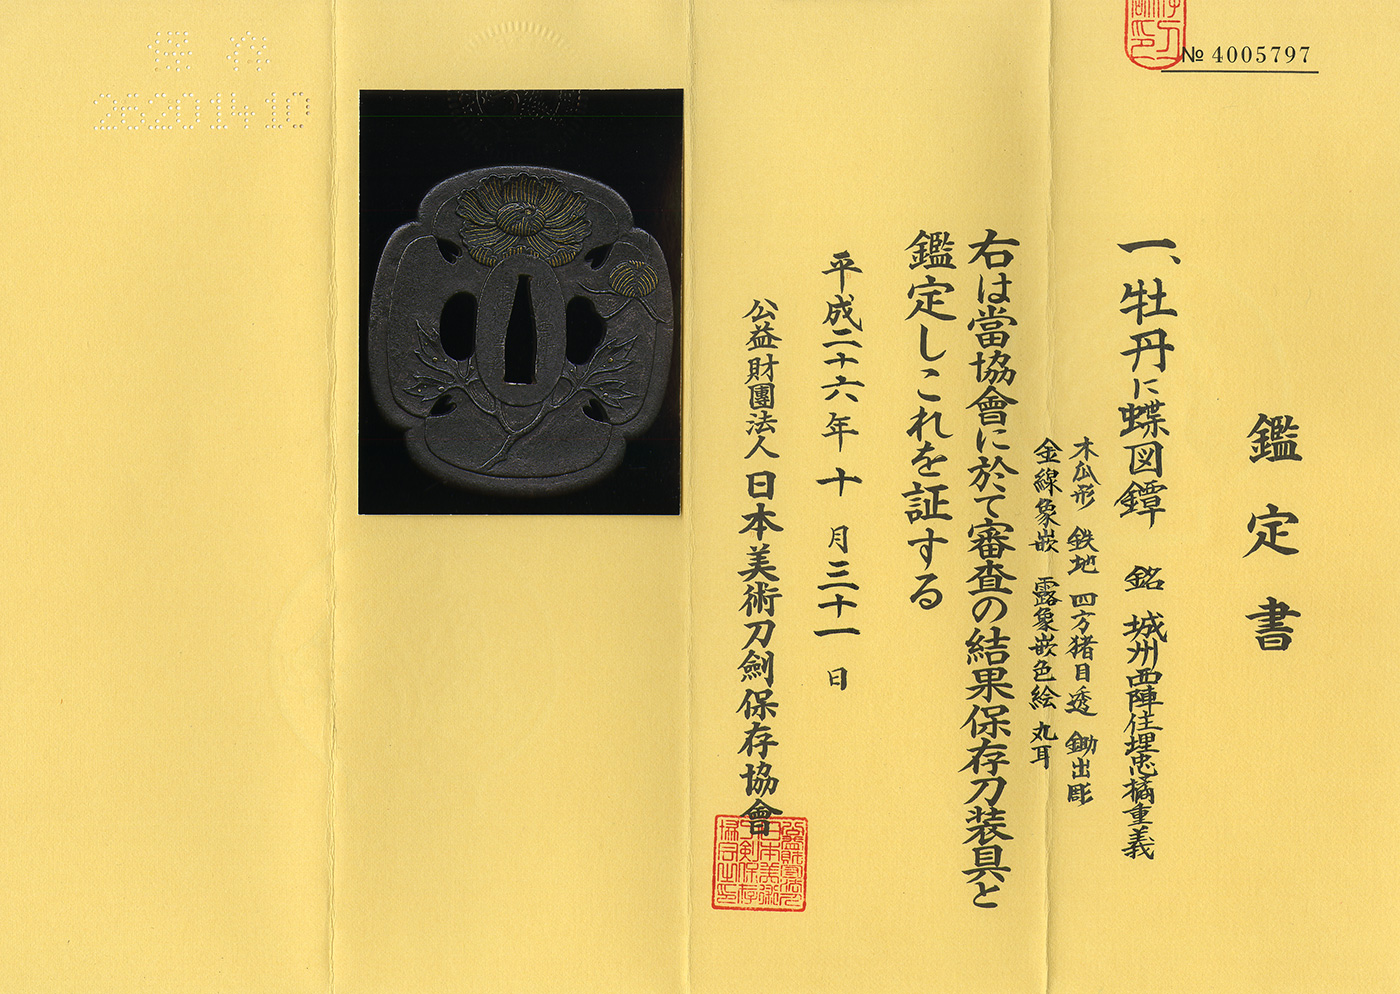 № 4005797
鑑定書
一、牡丹に蝶図鐔 銘 城州西陣住埋忠橘重義
木瓜形 鉄地 四方猪目透 鋤出彫
金線象嵌 露象嵌色絵 丸耳
右は當協會に於て審査の結果保存刀装具と
鑑定しこれを証する
平成二十六年 十 月三十一 日
公益財團法人 日本美術刀劍保存協會
保存
26201410